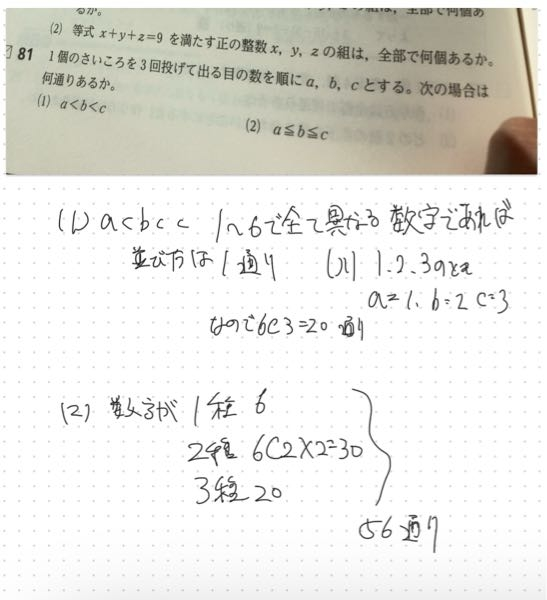 るか。
(2) 等式 x+y+z=9 を満たす正の整数 x, y, z の組は,全部で何個あるか。
81 1個のさいころを3回投げて出る目の数を順に a, b, c とする。次の場合は
何通りあるか。
(1) a<b<c (2) a≦b≦c
(1) a<b<c 1~6で全て異なる数字であれば
並び方は1通り (例) 1.2.3のとき
a=1. b=2 c=3
なので6C3=20通り
(2) 数字が1種 6
2種 6C2×2=30
3種 20
56通り